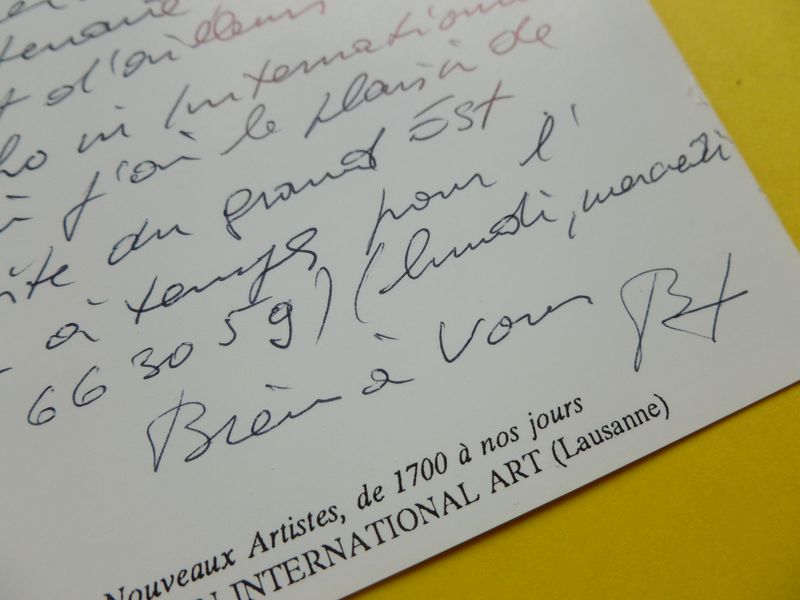 t d'ailleurs
ho in International
j'ai le plaisir de
du grand Est
à temps pour l'
66 30 59) (lundi, mercredi
Bien à vous
Nouveaux Artistes, de 1700 à nos jours
N INTERNATIONAL ART (Lausanne)